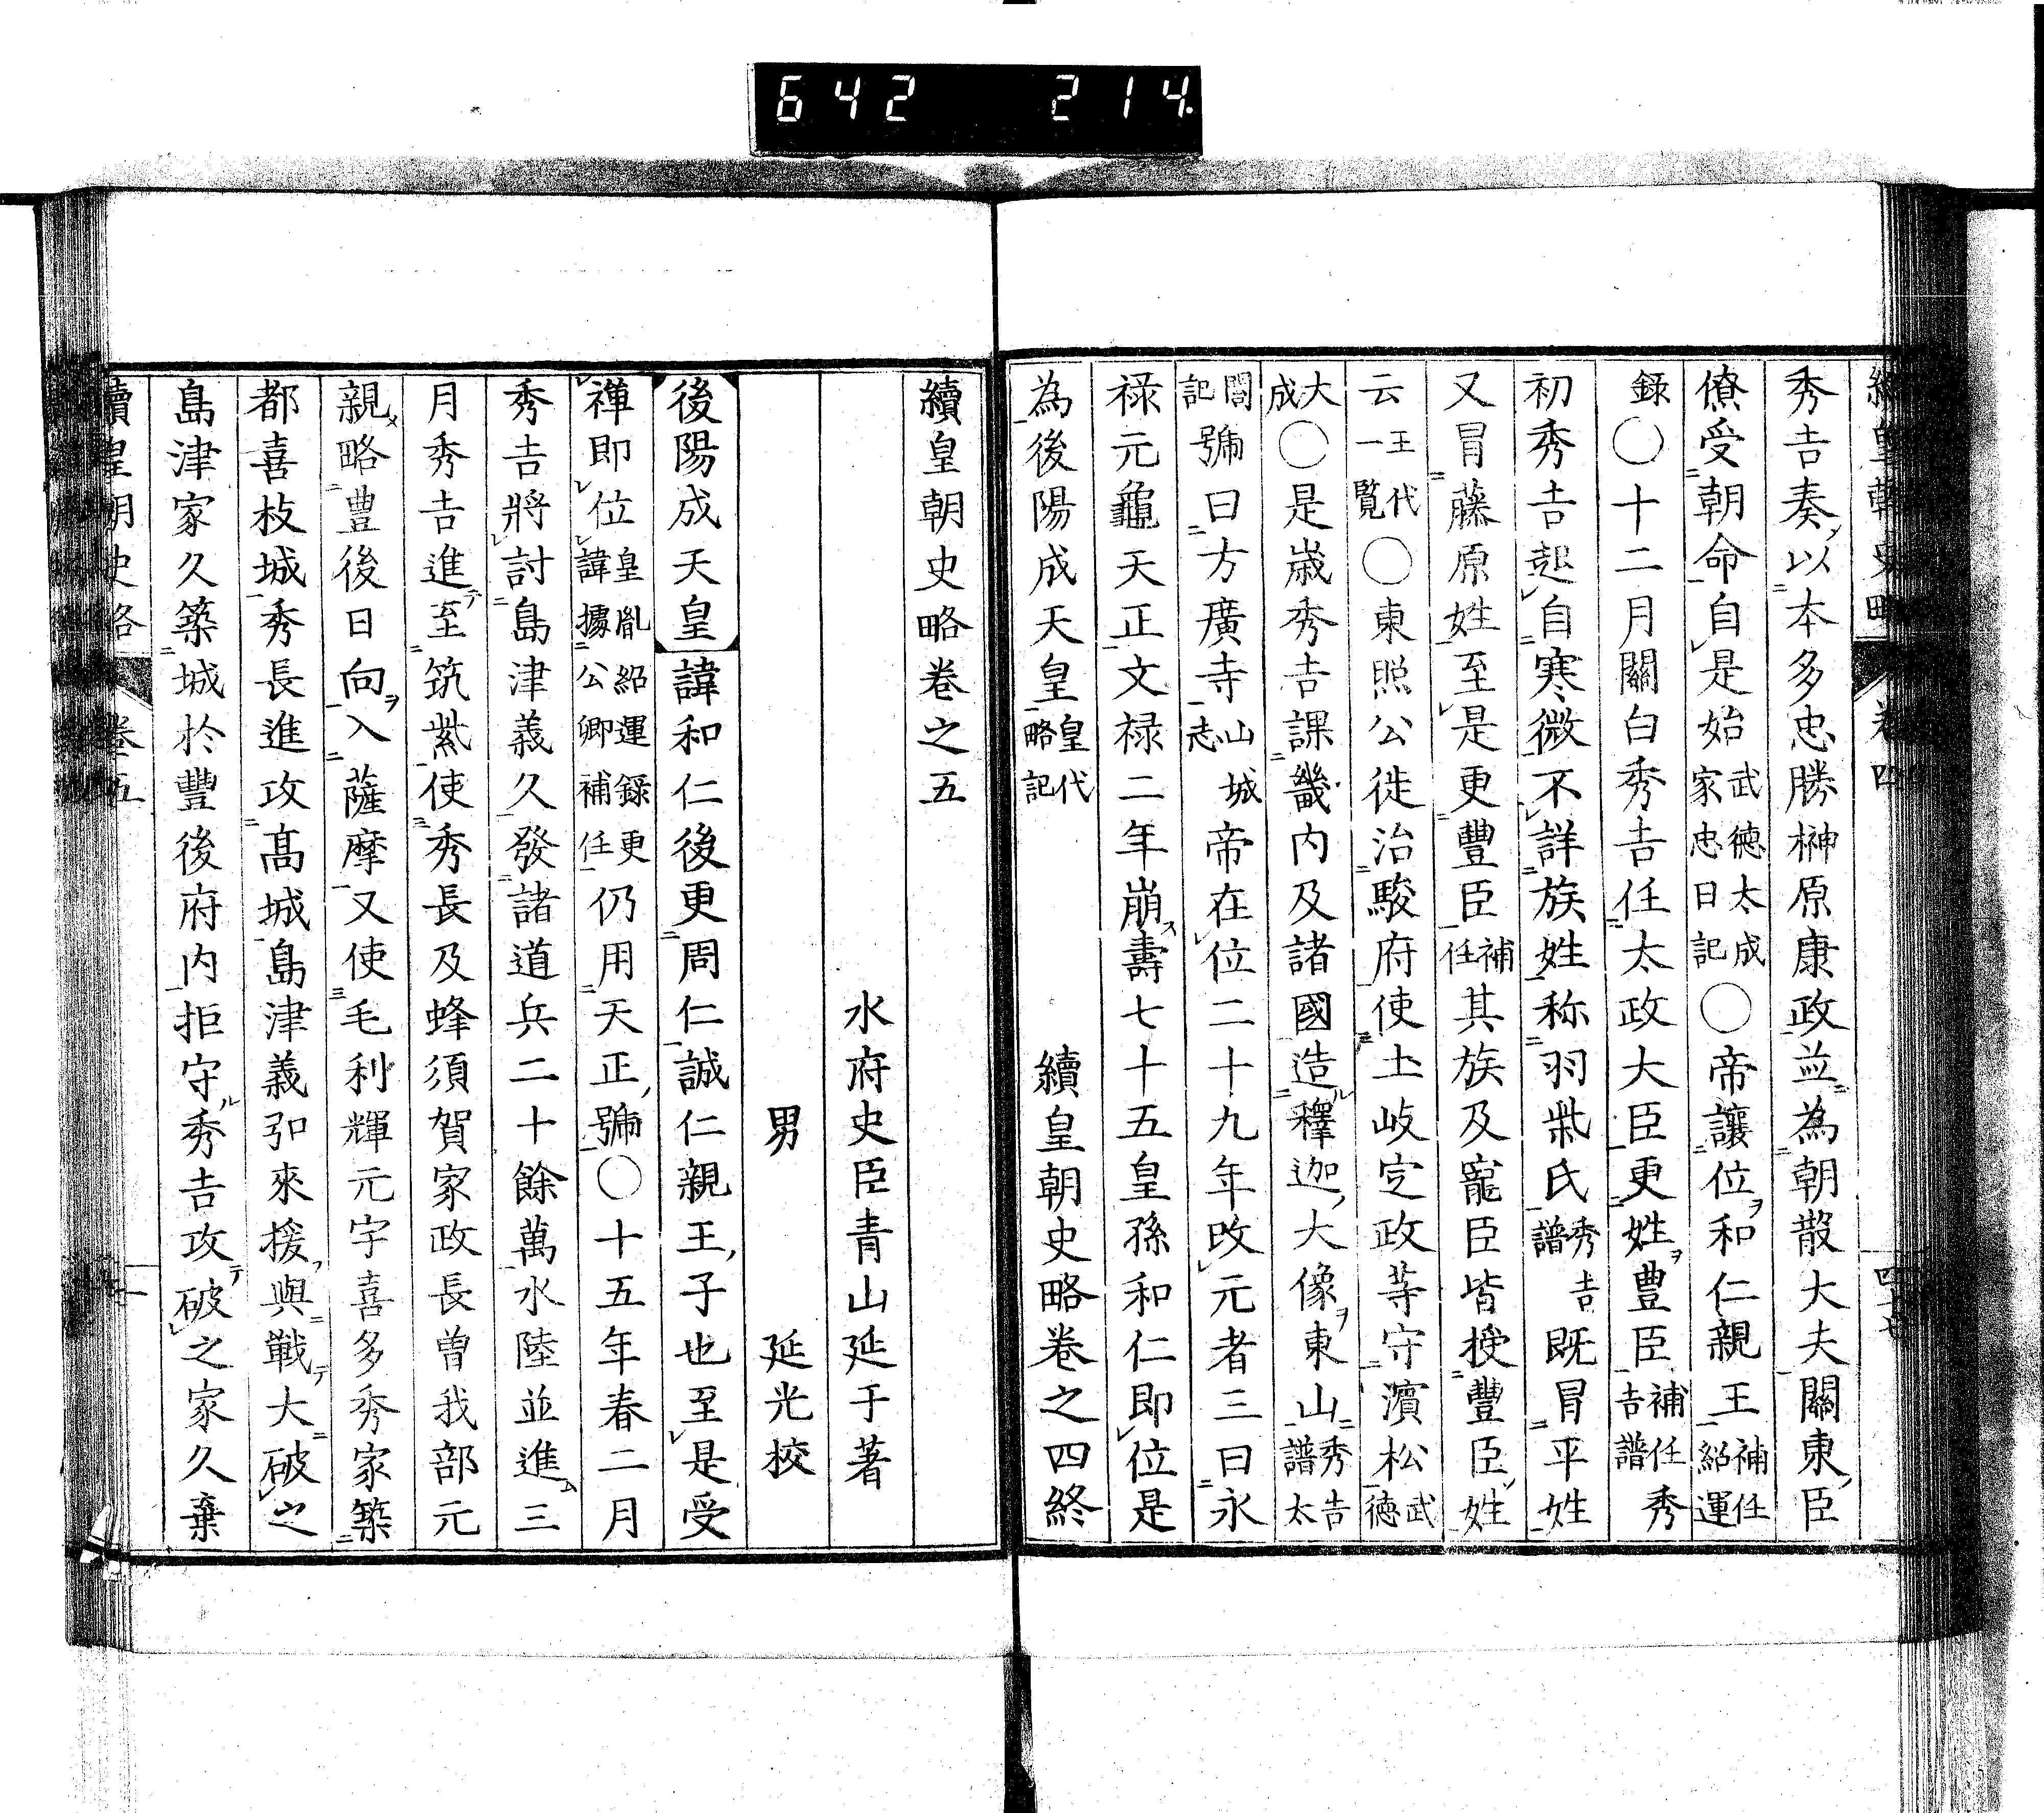 642 214
秀吉奏以本多忠勝榊原康政並為朝散大夫關東臣
僚受朝命自是始武徳太成家忠日記〇帝讓位和仁親王補任紹運
錄〇十二月關白秀吉任太政大臣更姓豊臣補任秀吉譜
初秀吉起自寒微不詳族姓称羽柴氏秀吉譜既冒平姓
又冒藤原姓至是更豐臣補任其族及寵臣皆授豐臣姓
云王代一覧〇東照公徙治駿府使土岐定政等守濱松武徳
大成〇是歲秀吉課畿内及諸國造釋迦大像東山秀吉譜太
閤記號曰方廣寺山城志帝在位二十九年改元者三曰永
禄元龜天正文禄二年崩壽七十五皇孫和仁即位是
為後陽成天皇皇代略記 續皇朝史略卷之四終
續皇朝史略卷之五
水府史臣青山延于著
男 延光校
後陽成天皇諱和仁後更周仁誠仁親王子也至是受
禅即位皇胤紹運錄更諱據公卿補任仍用天正號〇十五年春二月
秀吉將討島津義久發諸道兵二十餘萬水陸並進三
月秀吉進至筑紫使秀長及蜂須賀家政長曽我部元
親略豊後日向入薩摩又使毛利輝元宇喜多秀家築
都喜枝城秀長進攻髙城島津義弘來援與戰大破之
島津家久築城於豐後府内拒守秀吉攻破之家久棄